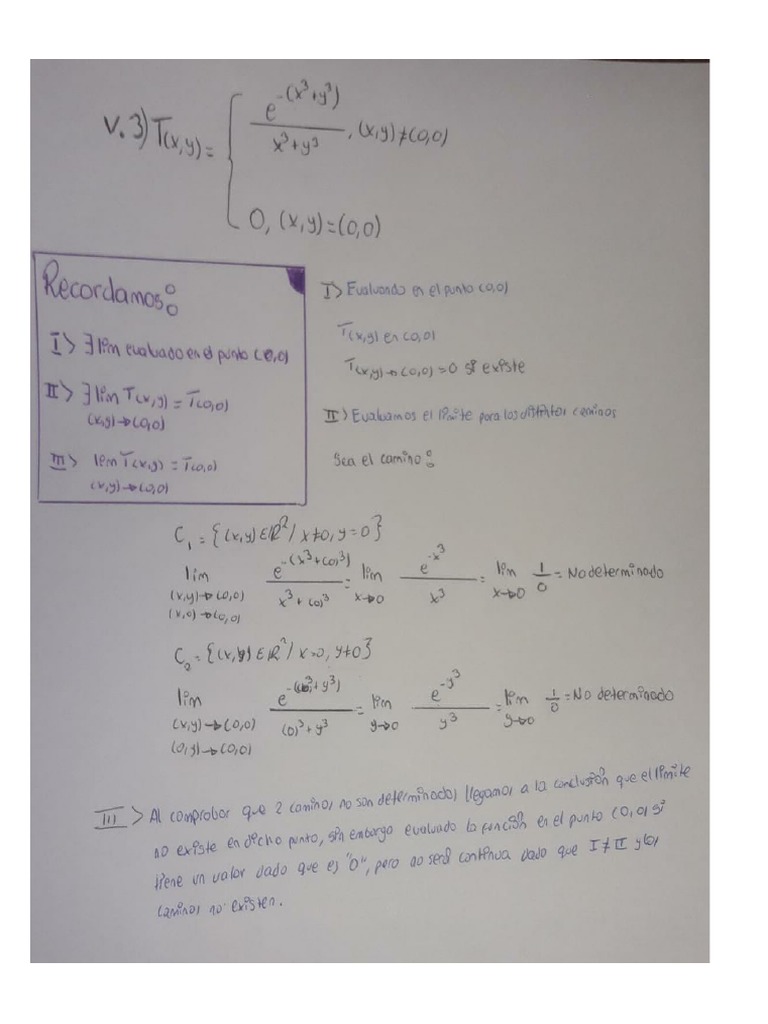 V. 3) T(x,y) = { e^-(x³+y³) / x³+y³ , (x,y)≠(0,0)
0, (x,y)=(0,0)
Recordamos:
I> ∃ lim evaluado en el punto (0,0)
II> ∃ lim T(x,y) = T(0,0)
(x,y)→(0,0)
III> lim T(x,y) = T(0,0)
(x,y)→(0,0)
I> Evaluando en el punto (0,0)
T(x,y) en (0,0)
T(x,y)→(0,0) = 0 si existe
II> Evaluamos el limite para los distintos caminos
Sea el camino:
C₁ = {(x,y) ∈ ℝ² / x≠0, y=0}
lim e^-(x³+(0)³) / x³+(0)³ = lim e^-x³ / x³ = lim 1/0 = No determinado
(x,y)→(0,0) x→0 x→0
(x,0)→(0,0)
C₂ = {(x,y) ∈ ℝ² / x=0, y≠0}
lim e^-((0)³+y³) / (0)³+y³ = lim e^-y³ / y³ = lim 1/0 = No determinado
(x,y)→(0,0) y→0 y→0
(0,y)→(0,0)
III> Al comprobar que 2 caminos no son determinados llegamos a la conclusión que el limite
no existe en dicho punto, sin embargo evaluado la función en el punto (0,0) si
tiene un valor dado que es "0", pero no será continua dado que I ≠ II y los
caminos no existen.